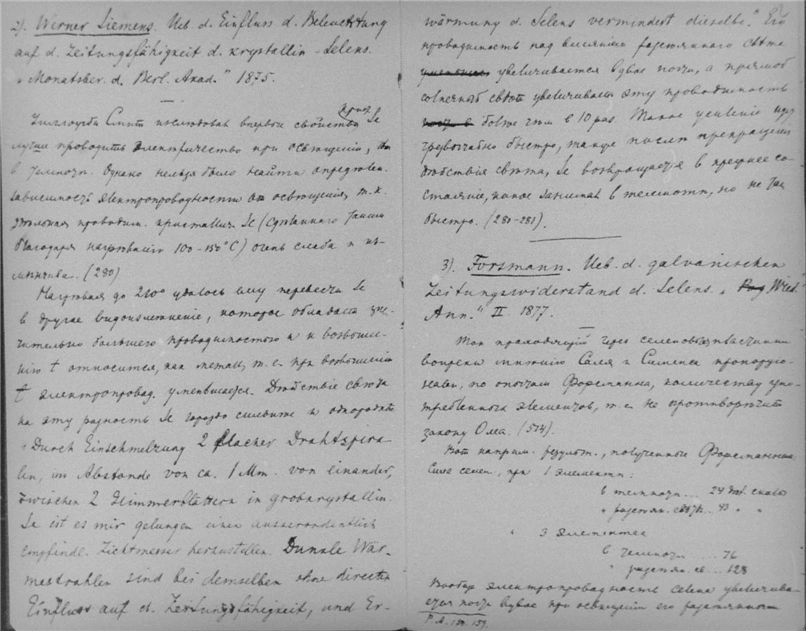 2). Werner Siemens. Ueb. d. Einfluss d. Beleuchtung
auf d. Leitungsfähigkeit d. krystallin. Selens.
„Monatsber. d. Berl. Akad." 1875.
Уиллоуби Смит изслѣдовал впервыя свойство Se
лучше проводить электричество при освѣщеніи,
в темноты. Однако нельзя было найти опредѣлен.
зависимость электропроводности от освѣщенія, т. к.
проводим. кристаллич. Se
благодаря нагрѣванію 100-150°C) очень слаба и из-
мѣнчива. (280)
Нагрѣвая до 210° удалось ему перевести Se
в другое видоизмѣненіе, которое обладает зна-
чительно большею проводимостью и к возвыше-
нію t относится, как металл, т. е. при возвышеніи
t электропровод. уменьшается. Дѣйствіе свѣта
на эту разность Se гораздо сильнѣе и однороднѣе
„Durch Einschmelzung 2 flacher Drahtspira-
len, im Abstande von ca. 1 Mm. von einander,
zwischen 2 Glimmerblättern in grobkrystallin.
Se ist es mir gelungen einen ausserordentlich
empfindl. Lichtmesser herzustellen. Dunkle Wär-
mestrahlen sind bei demselben ohne directen
Einfluss auf d. Leitungsfähigkeit, und Er-
wärmung d. Selens vermindert dieselbe." Его
проводимость под вліяніем разсѣяннаго свѣта
увеличивается вдвое почти, а прямой
солнечный свѣт увеличивает эту проводимость
болѣе чѣм в 10 раз. Такое усиленіе идет
чрезвычайно быстро, также послѣ прекращенія
дѣйствія свѣта, Se возвращается в прежнее со-
стояніе, какое занимал в темнотѣ, но не так
быстро. (280-281).
3). Forssmann. Ueb. d. galvanischen
Leitungswiderstand d. Selens. „Wied.
Ann." II 1877.
Ток проходящій через селеновыя пластинки
вопреки мнѣнію Саля и Сименса пропорціо-
нален, по опытам Форсманна, количеству упо-
требленных элементов, т. е. не противорѣчит
закону Ома. (514).
Вот наприм. результ., полученные Форсманном.
Сила селен. при 1 элементѣ:
в темнотѣ ... 24 скалы
" разсѣян. свѣтѣ .. 43 " "
" 3 элементах
в темнотѣ .... 76
" разсѣян. св. .. 128
Вообще электропроводность селена увеличива-
ется почти вдвое при освѣщеніи его разсѣянным